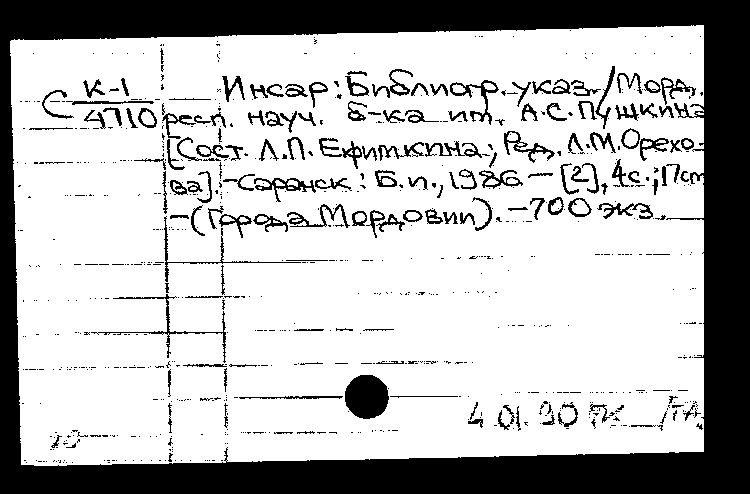 С К-1 Инсар: Библиогр. указ./Морд.
4710 респ. науч. б-ка им. А.С.Пушкина
[Сост. Л.П. Ефимкина; Ред. Л.М.Орехо-
ва].-Саранск: Б.и., 1986 - [2], 4с.;
-(Города Мордовии).-700 экз.
4 01. 90 ПК /ТА.
20